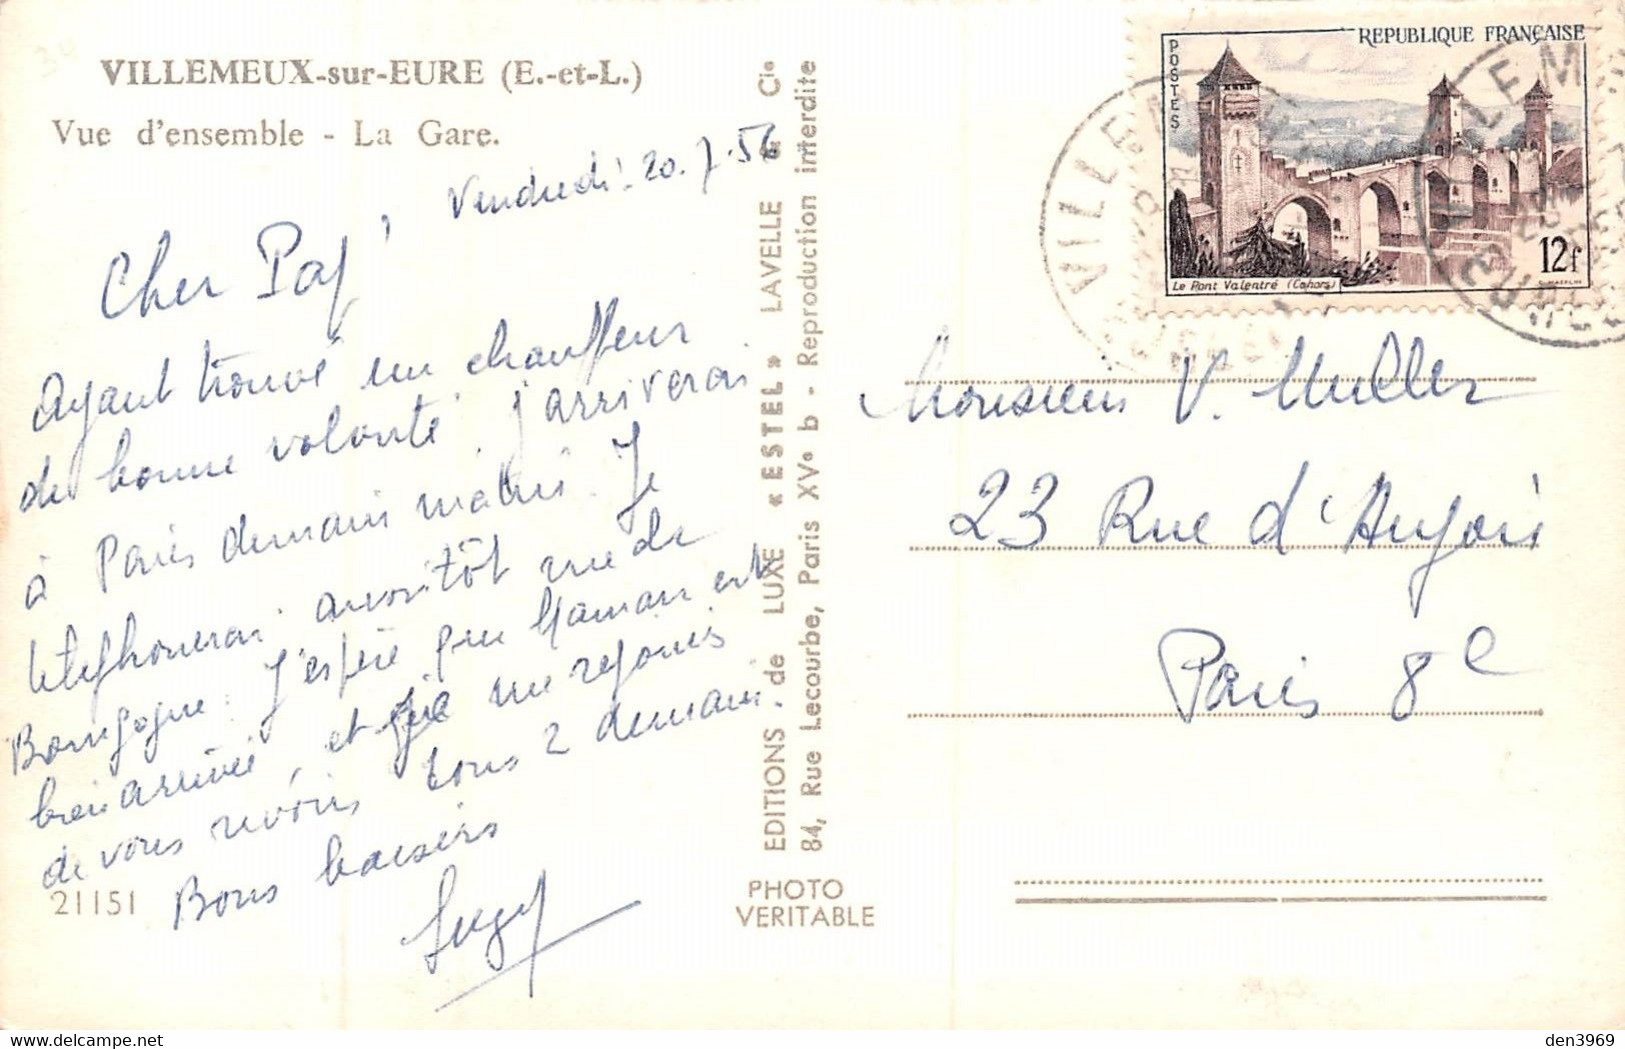 VILLEMEUX-sur-EURE (E.-et-L.)
Vue d'ensemble - La Gare.
Vendredi 20.7.56
Cher Pap'
Ayant trouvé un chauffeur
de bonne volonté j'arriverai
à Paris demain matin. Je
téléphonerai aussitôt rue de
Bourgogne. J'espère que Maman est
bien arrivée, et me réjouis
de vous revoir tous 2 demain.
Bons baisers
Suzy
21151
EDITIONS de LUXE « ESTEL » LAVELLE & Cie
84, Rue Lecourbe, Paris XVe b - Reproduction interdite
PHOTO
VERITABLE
REPUBLIQUE FRANÇAISE
POSTES
12f
Le Pont Valentré (Cahors)
VILLEM
VILLEM
Monsieur V. Muller
23 Rue d'Anjou
Paris 8e
den3969